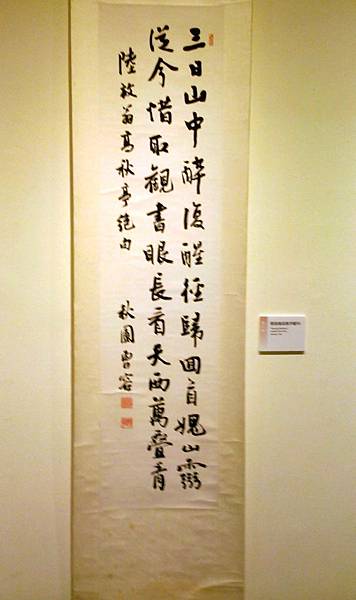 三日山中醉復醒徑歸回首愧山靈
從今惜取觀書眼長看天西萬疊青
陸放翁高秋亭絕句 秋圃曹容